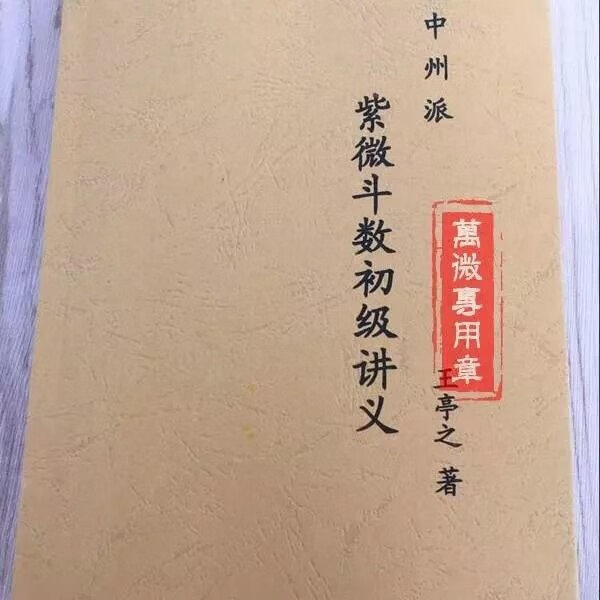 中州派
紫微斗数初级讲义
萬微專用章
王亭之 著